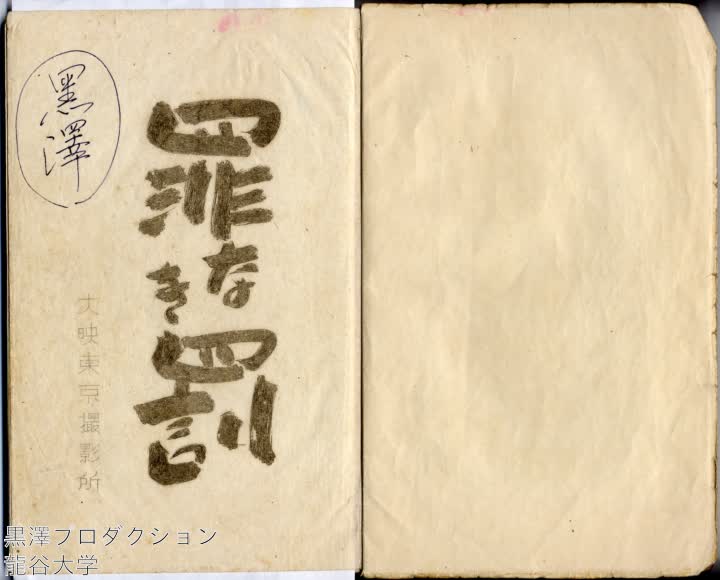 黒澤
罪なき罰
大映東京撮影所
黒澤プロダクション
龍谷大学